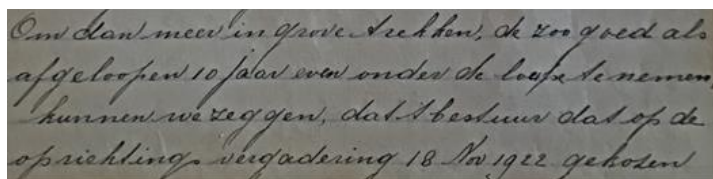 Om dan meer in grove trekken, de zoo goed als
afgeloopen 10 jaar even onder de loupe te nemen,
kunnen we zeggen, dat 't bestuur dat op de
oprichtings vergadering 18 Nov 1922 gekozen